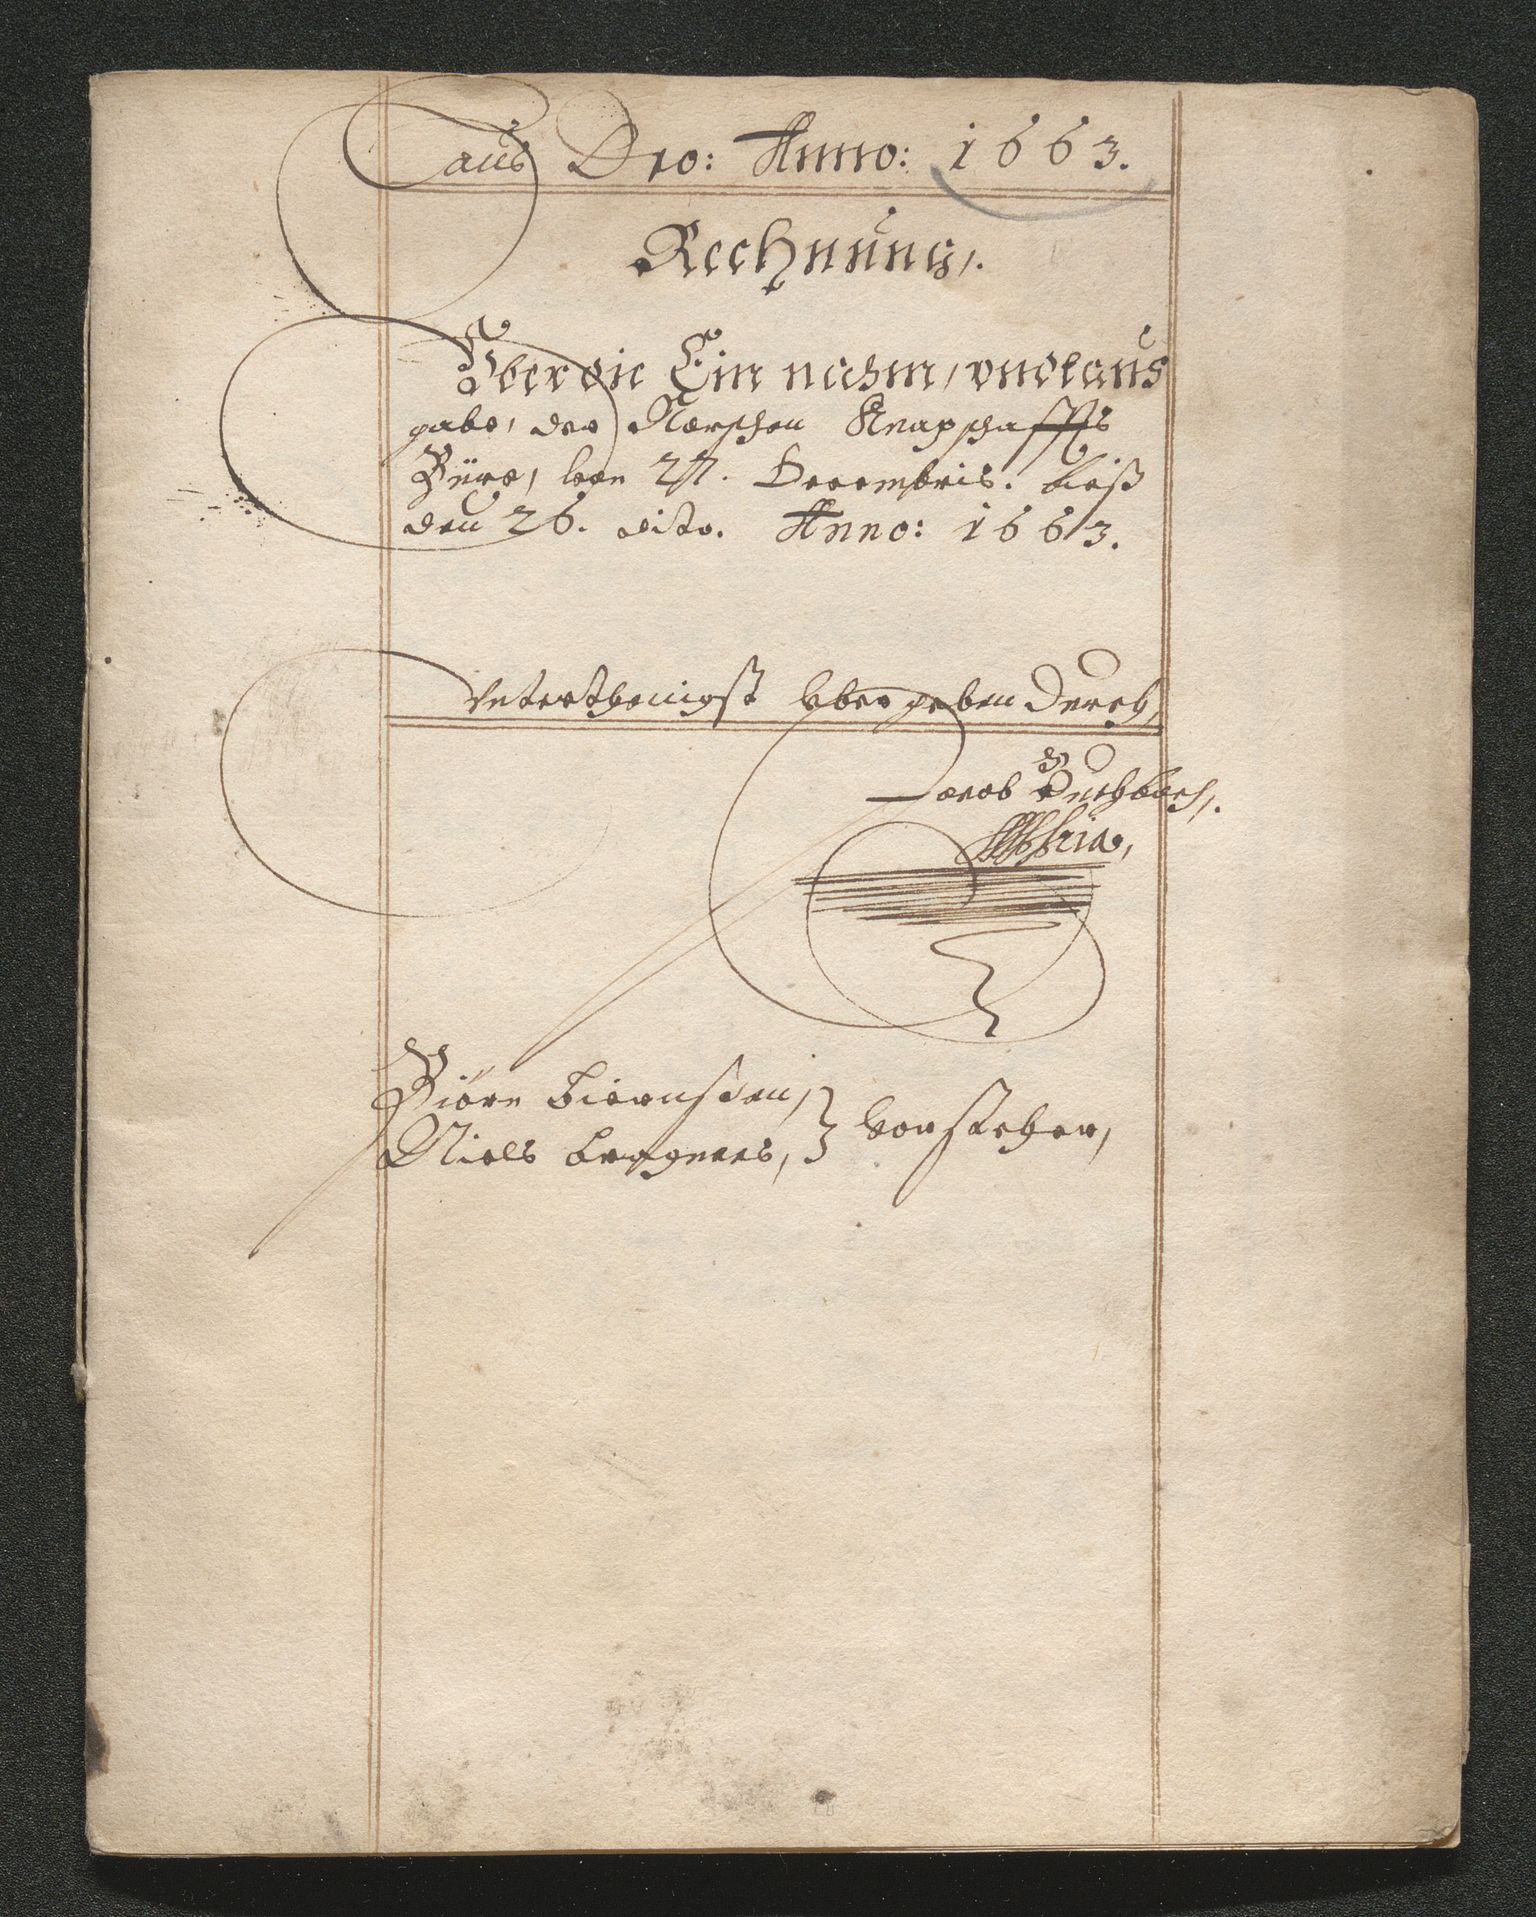 Laus Deo: Anno: 1663.
Rechnung,.
Über die Ein nahm, vndt aus
gabe, der Nörschen Knapschaffts
Büxe, von 27. Decembris. bieß
den 26. dito. Anno: 1663.
Vnterthenigst vbergeben durch,
Jacob Buchbach,.
Niels
Biörn Biörnsen,
vorsteher,